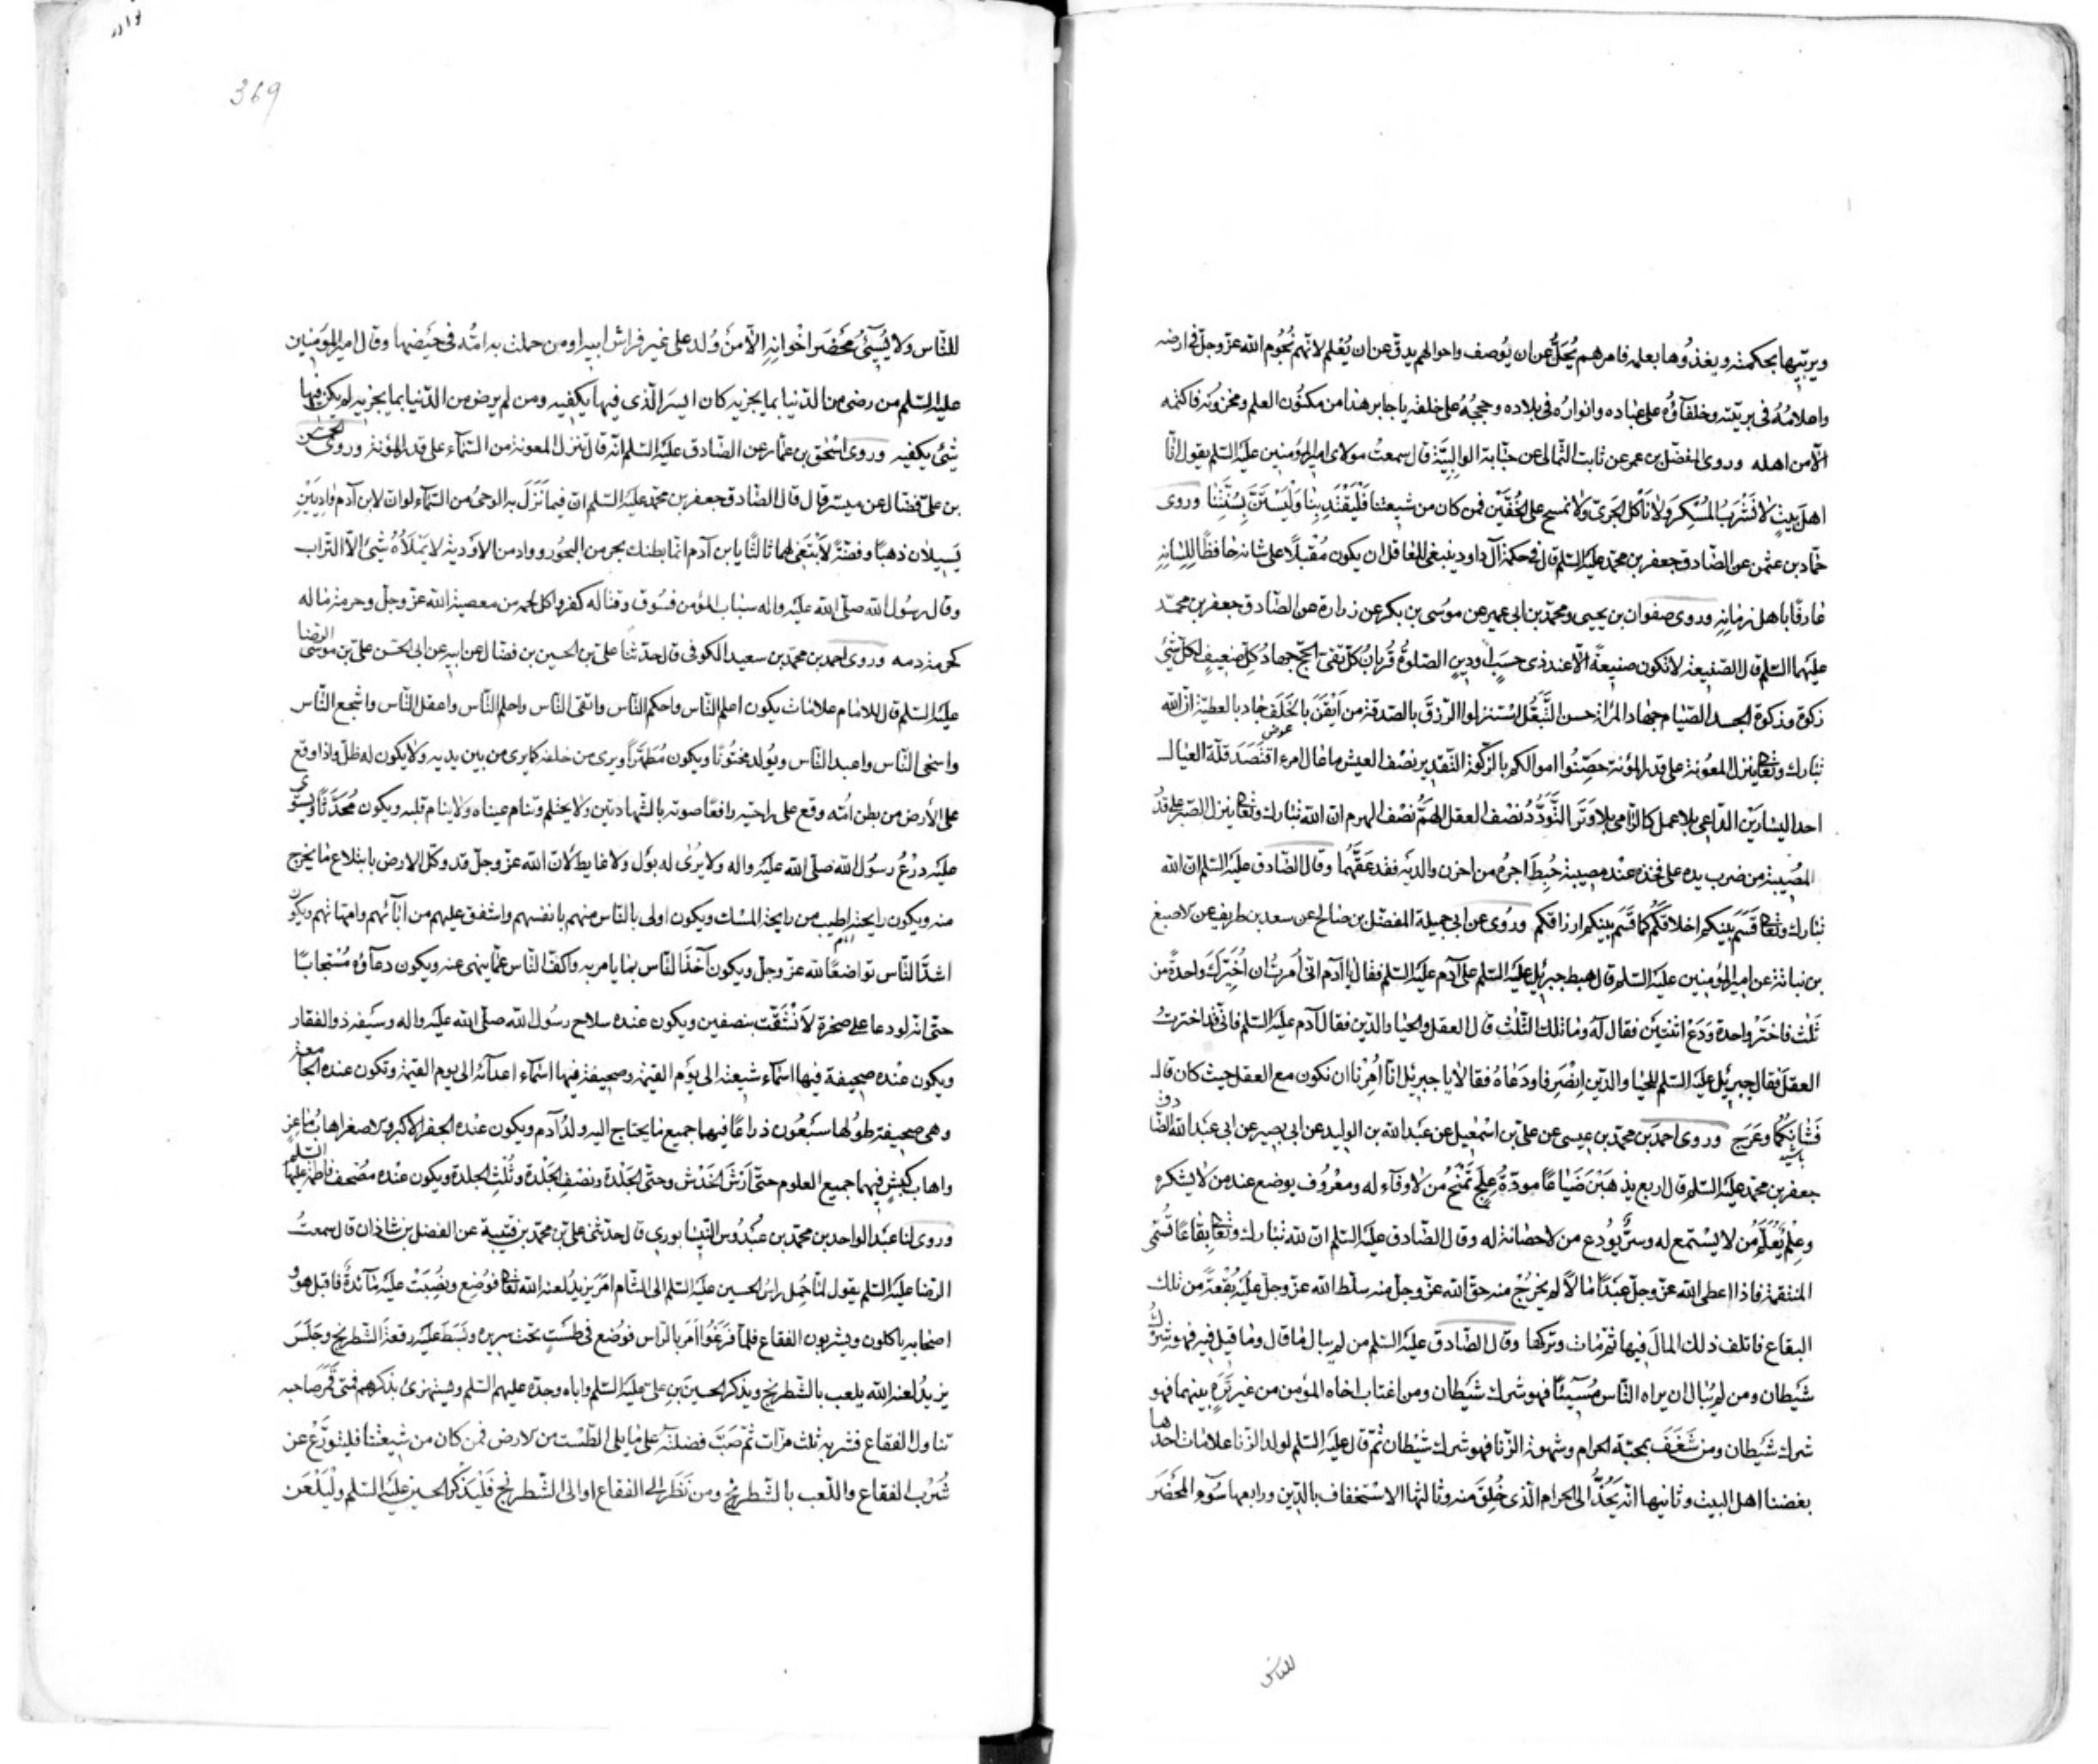 ويربيها بحكمته ويغذوها بعلمه فامرهم يُجَلُّ عن ان يُوصف واحوالهم يدقّ عن ان يُعْلم لانّهم نُجُوم الله عزّ وجلّ فى ارضه
واعلامُهُ فى بريّته وخلفآؤُه على عباده وانوارُه فى بلاده وحججُهُ على خلقه ياجابر هذا من مكنُون العلم ومخزونه فاكتمه
الّا من اهله وروى المفضّل بن عمر عن ثابت الثّمالى عن حبّابة الوالبيّة قال سمعتُ مولاى امير المؤمنين عليه السّلم يقول انّا
اهل بيتٍ لا نَشْرَبُ المُسْكِرَ ولا نَأكل الجَرىّ ولا نمسح على الخُفّين فمن كان من شيعتنا فَلْيَقْتَدِ بِنا وَلْيَسْتَنَّ بِسُنَّتِنا وروى
حمّاد بن عثمن عن الصّادق جعفر بن محمّد عليه السّلم قال فى حكمة آل داود ينبغى للعاقل ان يكون مُقْبلًا على شانه حافظًا لِلِسانِهِ
عارفًا باهل زمانِهِ وروى صفوان بن يحيى ومحمّد بن ابى عمير عن موسى بن بكر عن زرارة عن الصّادق جعفر بن محمّد
عليهما السّلم قال الصّنيعة لا تكون صنيعةً الّا عند ذى حَسَبٍ او دينٍ الصّلوةُ قُربانُ كلّ تقىّ الحجّ جهادُ كلّ ضعيفٍ لكلّ شئ
زكوة وزكوة الجسد الصّيام جهاد المرأة حسن التَّبَعُّل استنزلوا الرّزق بالصّدقة من اَيْقَنَ بالخَلَفِ جاد بالعطيّة انّ الله
تبارك وتعالى ينزل المعونة على قدر المؤنة حصّنُوا اموالكم بالزّكوة التّقدير نصْف العيش ما عال امرء اقتصد قلّة العيال
احد اليسارين الدّاعى بلا عمل كالرّامى بلا وَتَر التَّوَدُّدُ نصْف العقل الهَمُّ نصْف الهرم ان الله تبارك وتعالى ينزل الصّبر على قدْر
المصيبة من ضرب يده على فخذه عند مصيبةٍ حُبِطَ اجرُه من احزن والديه فقد عَقَّهُما وقال الصّادق عليه السّلم ان الله
تبارك وتعالى قَسَّمَ بَيْنَكم اخلاقكم كما قَسَّمَ بينكم ارزاقكم ورُوى عن ابى جميلة المفضّل بن صالح عن سعد بن طريف عن الاصبغ
بن نباتة عن امير المؤمنين عليه السّلم قال هبط جبرئيل عليه السّلم على آدم عليه السّلم فقال يا آدم انّى اُمرتُ ان اُخَيّركَ واحدةً من
ثلث فاختَرْ واحدة وَدَعْ اثنتين فقال له وما تلك الثّلث قال العقل والحيا والدّين فقال آدم عليه السّلم فانّى قد اخترتُ
العقل فقال جبرئيل عليه السّلم للحيا والدّين اِنْصَرِفا ودَعاهُ فقالا يا جبرئيل انّا اُمِرْنا ان نكون مع العقل حيث كان قال
فَشأنكُما وعَرَج وروى احمد بن محمّد بن عيسى عن على بن اسمعيل عن عبد الله بن الوليد عن ابى بصير عن ابى عبد الله الصّادق
جعفر بن محمّد عليه السّلم قال اربع يذهَبْنَ ضَياعًا مودّةٌ تَمْنَحُ مَن لا وفآء له ومعْرُوف يوضع عند من لا يشكره
وعِلْم يُعَلَّمُ مَن لا يسْتمع له وسرّ يُودع من لا حصانة له وقال الصّادق عليه السّلم انّ لله تبارك وتعالى بِقاعًا تُسَمّى
المنتقمة فاذا اعطى الله عزّ وجلّ عبْدًا مالًا لم يخرجْ منه حقّ الله عزّ وجلّ منه سلّط الله عزّ وجلّ عليه بُقْعةً من تلك
البقاع فاتلف ذلك المال فيها ثمّ مات وتركها وقال الصّادق عليه السّلم من لم يبال ما قال وما قيل فيه فهو شرك
شيطان ومن لم يُبال ان يراه النّاس مُسيئًا فهو شرك شيطان ومن اغتاب اخاه المؤمن من غير تِرَةٍ بينهما فهو
شرك شيطان ومن شَغَفَ بمحبّة الحرام وشهوة الزّنا فهو شرك شيطان ثمّ قال عليه السّلم لولد الزّنا علامات احدها
بغضنا اهل البيت وثانيها انّه يَحُنُّ الى الحرام الّذى خُلِقَ منه وثالثها الاسْتخفاف بالدّين ورابعها سُوء المَحْضَر
للناس
369
للنّاس ولا يُسِيئُ مَحْضَرَ اِخْوانِهِ الّا مَن وُلد على غير فراش ابيه او من حملت به امّه فى حَيْضها وقال امير المؤمنين
عليه السّلم من رضى من الدّنيا بما يجزيه كان ايسر الّذى فيها يكفيه ومن لم يرض من الدّنيا بما يجزيه لم يكن فيها
شئ يكفيه وروى اسْحٰق بن عمّار عن الصّادق عليه السّلم انّه قال تنزل المعونة من السّمآء على قدر المؤنة وروى الحسن
بن على فضّال عن ميسّر قال قال الصّادق جعفر بن محمّد عليه السّلم ان فيما نَزَلَ به الوحى من السّمآء لو ان لابن آدم وادِيَيْنِ
يَسيلان ذهبًا وفضّةً لَابْتَغى لهما ثالثًا يا بن آدم انّما بطنك بحر من البحُور وواد من الاوْدية لا يَمْلَأُهُ شئ الّا التّراب
وقال رسُول الله صلّى الله عليه واله سباب المؤمن فسُوق وقتاله كفر واكل لحمه من معصية الله عزّ وجلّ وحرمة ماله
كحرمة دمه وروى احمد بن محمّد بن سعيد الكوفى قال حدّثنا علىّ بن الحسين بن فضّال عن ابيه عن ابى الحسن علىّ بن موسى الرّضا
عليه السّلم قال للامام علامات يكون اعلم النّاس واحكم النّاس واتقى النّاس واحلم النّاس واعقل النّاس واشجع النّاس
واسخى النّاس واعبد النّاس ويُولد مختُونًا ويكون مُطَهَّرًا ويرى من خلفه كما يرى من بين يديه ولا يكون له ظلّ واذا وقع
على الأرض من بطن اُمّه وقع على راحتيه رافعًا صوته بالشّهادتين ولا يحتلم وتنام عيناه ولا ينام قلبه ويكون مُحَدَّثًا ويستوى
عليه دِرْعُ رسُول الله صلّى الله عليه واله ولا يُرىٰ له بوْل ولا غايط لانّ الله عزّ وجلّ قد وكّل الارض بابتلاع ما يخرج
منه ويكون رايحته اطيب من رايحة المسْك ويكون اولى بالنّاس منهم بانفسهم واشفق عليهم من ابآئهم وامّهاتهم ويكون
اشدّ النّاس تواضعًا لله عزّ وجلّ ويكون آخذ النّاس بما يامر به واكفّ النّاس عمّا ينهى عنه ويكون دعآؤه مُسْتجابًا
حتّى انّه لو دعا على صخرة لَانْشَقّت بنصفين ويكون عنده سلاح رسُول الله صلّى الله عليه واله وسيْفه ذو الفقار
ويكون عنْده صحيفة فيها اسْمآء شيعته الى يوْم القيٰمة وصحيفة فيها اسْمآء اعدآئه الى يوم القيٰمة وتكون عنده الجامعة
وهى صحيفة طولُها سَبْعُون ذراعًا فيها جميع ما يحتاج اليه ولدُ آدم ويكون عنْده الجفر الاكبر والاصغر اهاب ماعز
واهاب كبشٍ فيهما جميع العلوم حتّى اَرْشَ الخَدْش وحتّى الجَلْدة ونصْف الجَلْدة وثُلْثِ الجلدة ويكون عنْده مصْحف فاطمة عليها السّلم
وروى لنا عبْد الواحد بن محمّد بن عبْدُوس النّيسابورى قال حدّثنى علىّ بن محمّد بن قتيْبة عن الفضل بن شاذان قال سمعتُ
الرّضا عليه السّلم يقول لمّا حُمِل راسُ الحسين عليه السّلم الى الشّام امَرَ يزيدُ لعنه الله تعالى فوُضِع ونُصِبَتْ عليه مآئدةٌ فاقبل هو و
اصْحابه ياكلون ويشربون الفقاع فلمّا فَرَغُوا اَمَر بالرّاس فوُضع فى طسْتٍ تحت سريره وبَسَط عليه رقعةَ الشّطرنج وجَلَسَ
يزيدُ لعنه الله يلعب بالشّطرنج ويذكر الحسين بن علىّ عليه السّلم واباه وجدّه عليهم السّلم ويستهزئ بذكرهم فمتى قَمَرَ صاحبه
تناول الفقاع فشربه ثلث مرّات ثمّ صَبَّ فضلته على ما يلى الطّسْت من الارض فمن كان من شيعتنا فليتورّع عن
شُرْب الفقاع واللّعب بالشّطرنج ومن نَظَر الى الفقاع او الى الشّطرنج فَلْيَذْكر الحسين عليه السّلم ولْيَلْعَن